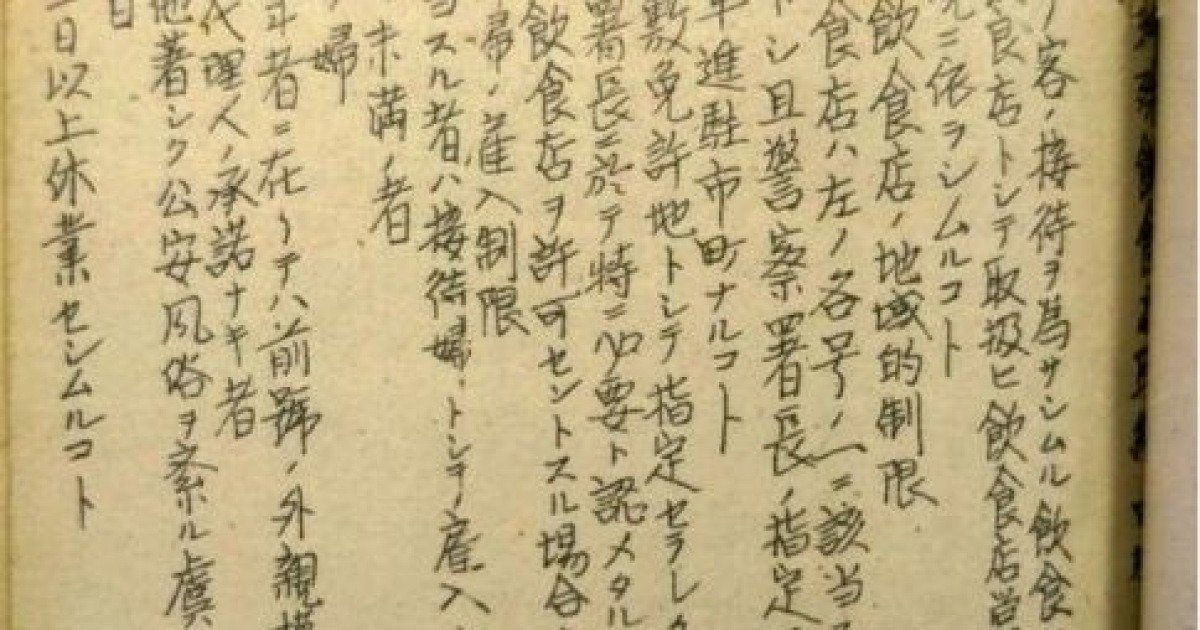 ノ客ノ接待ヲ為サシムル飲食
食店トシテ取扱ヒ飲食店営
ニ依ラシムルコト
飲食店ノ地域的制限
食店ハ左ノ各号ノ一ニ該当
トシ且警察署長ノ指定
進駐市町ナルコト
敷免許地トシテ指定セラレタ
署長ニ於テ特ニ必要ト認メタル
飲食店ヲ許可セントスル場合
婦ノ雇入制限
当スル者ハ接待婦トシテノ雇入
未満ノ者
婦
年者ニ在リテハ前號ノ外親権
代理人ノ承諾ナキ者
地著シク公安風俗ヲ紊ル虞
日
日以上休業セシムルコト